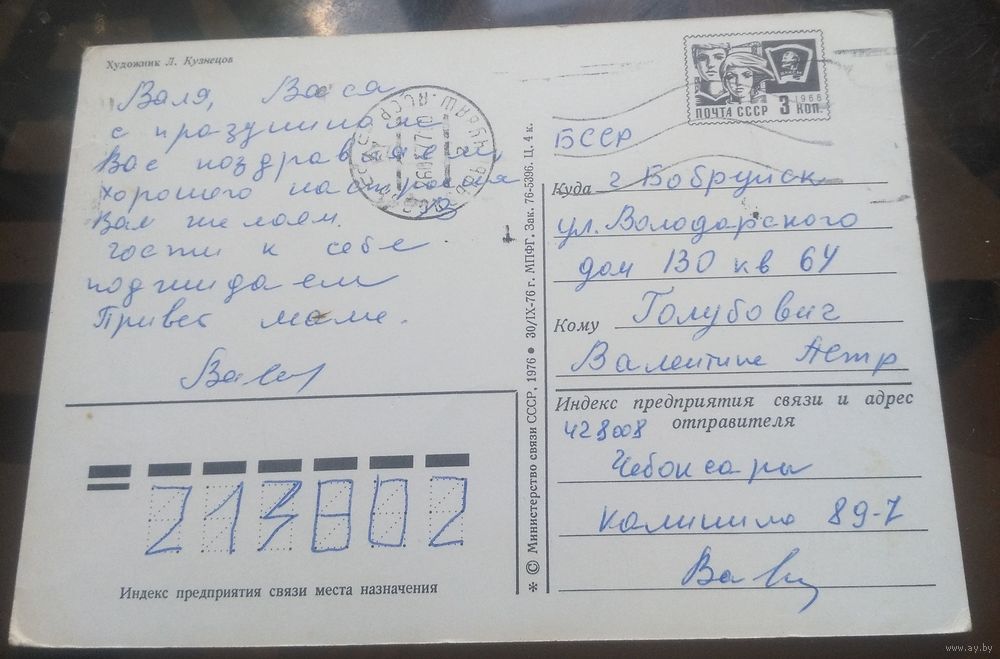 Художник Л. Кузнецов
Валя, Васа
с праздниками
Вас поздравляем,
хорошего настроения
Вам желаем.
гости к себе
поджидаем
Привет маме.
ПОЧТА СССР 3 КОП.
1966
БССР
Куда г Бобруйск
ул. Володарского
дом 130 кв 64
Кому Голубович
Валентине Петр
Индекс предприятия связи и адрес
отправителя
428008
Чебоксары
Калинина 89-7
213802
Индекс предприятия связи места назначения
* © Министерство связи СССР, 1976 ● 30/IX-76 г. МПФГ. Зак. 76-5396. Ц. 4 к.
www.ay.by